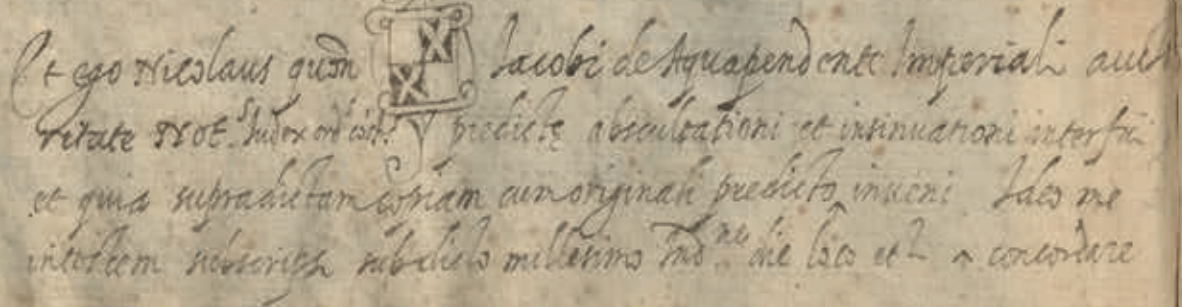 Et ego Nicolaus quon Iacobi de Aquapendente Imperiali aucto
ritate Not. Iudex ord predicte abscultationi et insinuationi interfui
et quia supradictam copiam cum originali predicto inueni Ideo me
in testem subscripsi subdicto millesimo Ind.ne die loco et ^ concordare